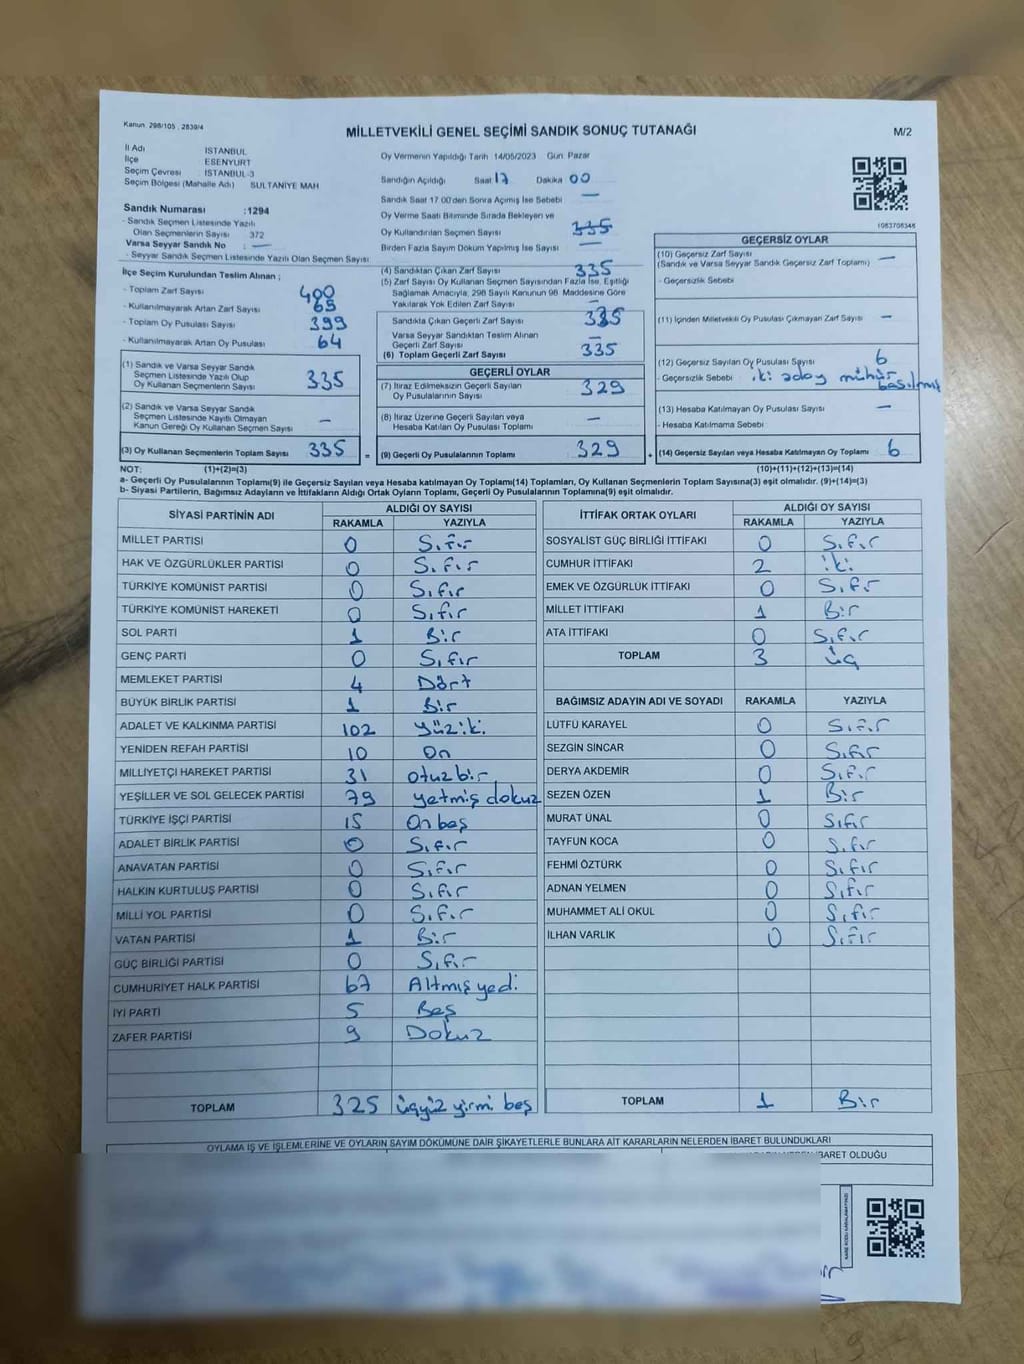 Kanun 298/105 , 2839/4
MİLLETVEKİLİ GENEL SEÇİMİ SANDIK SONUÇ TUTANAĞI
M/2
İl Adı İSTANBUL
İlçe ESENYURT
Seçim Çevresi : İSTANBUL-3
Seçim Bölgesi (Mahalle Adı) SULTANİYE MAH
Sandık Numarası :1294
- Sandık Seçmen Listesinde Yazılı
Olan Seçmenlerin Sayısı 372
Varsa Seyyar Sandık No : —
- Seyyar Seçmen Listesinde Yazılı Olan Seçmen Sayısı
İlçe Seçim Kurulundan Teslim Alınan ;
- Toplam Zarf Sayısı 400
- Kullanılmayarak Artan Zarf Sayısı 65
- Toplam Oy Pusulası Sayısı 399
- Kullanılmayarak Artan Oy Pusulası 64
(1) Sandık ve Varsa Seyyar Sandık
Seçmen Listesinde Yazılı Olup
Oy Kullanan Seçmenlerin Sayısı 335
(2) Sandık ve Varsa Seyyar Sandık
Seçmen Listesinde Kayıtlı Olmayan
Kanun Gereği Oy Kullanan Seçmen Sayısı —
(3) Oy Kullanan Seçmenlerin Toplam Sayısı 335 =
Oy Vermenin Yapıldığı Tarih 14/05/2023 Gün Pazar
Sandığın Açıldığı Saat 17 Dakika 00
Sandık Saat 17 00'den Sonra Açımış İse Sebebi —
Oy Verme Saati Bitiminde Sırada Bekleyen ve
Oy Kullandırılan Seçmen Sayısı 335
Birden Fazla Sayım Döküm Yapılmış İse Sayısı —
(4) Sandıktan Çıkan Zarf Sayısı 335
(5) Zarf Sayısı Oy Kullanan Seçmen Sayısından Fazla İse, Eşitliği
Sağlamak Amacıyla, 298 Sayılı Kanunun 98 Maddesine Göre
Yakılarak Yok Edilen Zarf Sayısı —
Sandıkta Çıkan Geçerli Zarf Sayısı 335
Varsa Seyyar Sandıktan Teslim Alınan
Geçerli Zarf Sayısı
(6) Toplam Geçerli Zarf Sayısı 335
GEÇERLİ OYLAR
(7) İtiraz Edilmeksizin Geçerli Sayılan
Oy Pusulalarının Sayısı 329
(8) İtiraz Üzerine Geçerli Sayılan veya
Hesaba Katılan Oy Pusulası Toplamı —
(9) Geçerli Oy Pusulalarının Toplamı 329 +
1063706346
GEÇERSİZ OYLAR
(10) Geçersiz Zarf Sayısı
(Sandık ve Varsa Seyyar Sandık Geçersiz Zarf Toplamı) —
- Geçersizlik Sebebi
(11) İçinden Milletvekili Oy Pusulası Çıkmayan Zarf Sayısı —
(12) Geçersiz Sayılan Oy Pusulası Sayısı 6
- Geçersizlik Sebebi iki aday mühür
basılmış
(13) Hesaba Katılmayan Oy Pusulası Sayısı —
- Hesaba Katılmama Sebebi
(14) Geçersiz Sayılan veya Hesaba Katılmayan Oy Toplamı 6
NOT: (1)+(2)=(3) (10)+(11)+(12)+(13)=(14)
a- Geçerli Oy Pusulalarının Toplamı(9) ile Geçersiz Sayılan veya Hesaba katılmayan Oy Toplamı(14) Toplamları, Oy Kullanan Seçmenlerin Toplam Sayısına(3) eşit olmalıdır. (9)+(14)=(3)
b- Siyasi Partilerin, Bağımsız Adayların ve İttifakların Aldığı Ortak Oyların Toplamı, Geçerli Oy Pusulalarının Toplamına(9) eşit olmalıdır.
SİYASİ PARTİNİN ADI ALDIĞI OY SAYISI
RAKAMLA YAZIYLA
MİLLET PARTİSİ 0 Sıfır
HAK VE ÖZGÜRLÜKLER PARTİSİ 0 Sıfır
TÜRKİYE KOMÜNİST PARTİSİ 0 Sıfır
TÜRKİYE KOMÜNİST HAREKETİ 0 Sıfır
SOL PARTİ 1 Bir
GENÇ PARTİ 0 Sıfır
MEMLEKET PARTİSİ 4 Dört
BÜYÜK BİRLİK PARTİSİ 1 Bir
ADALET VE KALKINMA PARTİSİ 102 Yüz iki
YENİDEN REFAH PARTİSİ 10 On
MİLLİYETÇİ HAREKET PARTİSİ 31 otuz bir
YEŞİLLER VE SOL GELECEK PARTİSİ 79 yetmiş dokuz
TÜRKİYE İŞÇİ PARTİSİ 15 On beş
ADALET BİRLİK PARTİSİ 0 Sıfır
ANAVATAN PARTİSİ 0 Sıfır
HALKIN KURTULUŞ PARTİSİ 0 Sıfır
MİLLİ YOL PARTİSİ 0 Sıfır
VATAN PARTİSİ 1 Bir
GÜÇ BİRLİĞİ PARTİSİ 0 Sıfır
CUMHURİYET HALK PARTİSİ 67 Altmış yedi
İYİ PARTİ 5 Beş
ZAFER PARTİSİ 9 Dokuz
TOPLAM 325 üçyüz yirmi beş
İTTİFAK ORTAK OYLARI ALDIĞI OY SAYISI
RAKAMLA YAZIYLA
SOSYALİST GÜÇ BİRLİĞİ İTTİFAKI 0 Sıfır
CUMHUR İTTİFAKI 2 iki
EMEK VE ÖZGÜRLÜK İTTİFAKI 0 Sıfır
MİLLET İTTİFAKI 1 Bir
ATA İTTİFAKI 0 Sıfır
TOPLAM 3 üç
BAĞIMSIZ ADAYIN ADI VE SOYADI RAKAMLA YAZIYLA
LÜTFÜ KARAYEL 0 Sıfır
SEZGİN SİNCAR 0 Sıfır
DERYA AKDEMİR 0 Sıfır
SEZEN ÖZEN 1 Bir
MURAT ÜNAL 0 Sıfır
TAYFUN KOCA 0 Sıfır
FEHMİ ÖZTÜRK 0 Sıfır
ADNAN YELMEN 0 Sıfır
MUHAMMET ALİ OKUL 0 Sıfır
İLHAN VARLIK 0 Sıfır
TOPLAM 1 Bir
OYLAMA İŞ VE İŞLEMLERİNE VE OYLARIN SAYIM DÖKÜMÜNE DAİR ŞİKAYETLERLE BUNLARA AİT KARARLARIN NELERDEN İBARET BULUNDUKLARI
İBARET OLDUĞU
KARE KODU KARALAMAYINIZ